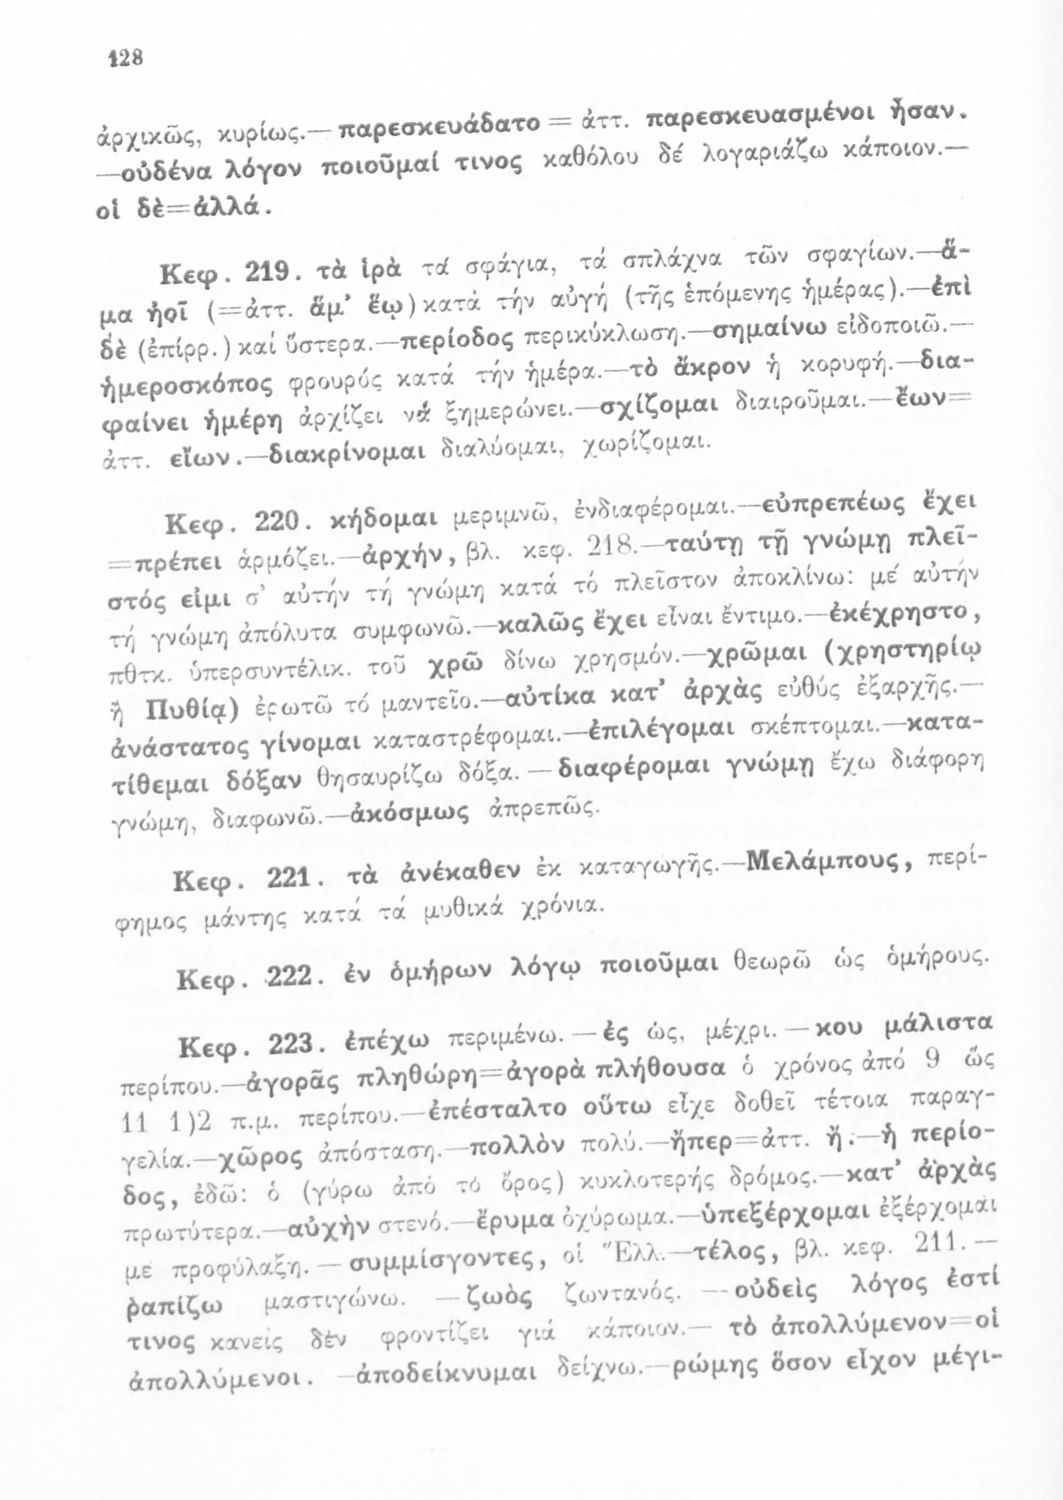 128
ἀρχικῶς, κυρίως.— παρεσκευάδατο = ἀττ. παρεσκευασμένοι ἦσαν.
—οὐδένα λόγον ποιοῦμαί τινος καθόλου δέ λογαριάζω κάποιον.—
οἱ δὲ=ἀλλά.
Κεφ. 219. τὰ ἱρὰ τά σφάγια, τά σπλάχνα τῶν σφαγίων.—ἅ-
μα ἠοῖ (=ἀττ. ἅμ' ἕῳ) κατά τήν αὐγή (τῆς ἑπόμενης ἡμέρας).—ἐπὶ
δὲ (ἐπίρρ.) καί ὕστερα.—περίοδος περικύκλωση.—σημαίνω εἰδοποιῶ.—
ἡμεροσκόπος φρουρός κατά τήν ἡμέρα.—τὸ ἄκρον ἡ κορυφή.—δια-
φαίνει ἡμέρη ἀρχίζει νά ξημερώνει.—σχίζομαι διαιροῦμαι.—ἔων=
ἀττ. εἴων.—διακρίνομαι διαλύομαι, χωρίζομαι.
Κεφ. 220. κήδομαι μεριμνῶ, ἐνδιαφέρομαι.—εὐπρεπέως ἔχει
=πρέπει ἁρμόζει.—ἀρχήν, βλ. κεφ. 218.—ταύτῃ τῇ γνώμῃ πλεῖ-
στός εἰμι σ' αὐτήν τή γνώμη κατά τό πλεῖστον ἀποκλίνω: μέ αὐτήν
τή γνώμη ἀπόλυτα συμφωνῶ.—καλῶς ἔχει εἶναι ἔντιμο.—ἐκέχρηστο,
πθτκ. ὑπερσυντέλικ. τοῦ χρῶ δίνω χρησμόν.—χρῶμαι (χρηστηρίῳ
ἢ Πυθίᾳ) ἐρωτῶ τό μαντεῖο.—αὐτίκα κατ' ἀρχὰς εὐθύς ἐξαρχῆς.—
ἀνάστατος γίνομαι καταστρέφομαι.—ἐπιλέγομαι σκέπτομαι.—κατα-
τίθεμαι δόξαν θησαυρίζω δόξα. — διαφέρομαι γνώμῃ ἔχω διάφορη
γνώμη, διαφωνῶ.—ἀκόσμως ἀπρεπῶς.
Κεφ. 221. τὰ ἀνέκαθεν ἐκ καταγωγῆς.—Μελάμπους, περί-
φημος μάντης κατά τά μυθικά χρόνια.
Κεφ. 222. ἐν ὁμήρων λόγῳ ποιοῦμαι θεωρῶ ὡς ὁμήρους.
Κεφ. 223. ἐπέχω περιμένω. — ἐς ὡς, μέχρι. — κου μάλιστα
περίπου.—ἀγορᾶς πληθώρη=ἀγορὰ πλήθουσα ὁ χρόνος ἀπό 9 ὥς
11 1)2 π.μ. περίπου.—ἐπέσταλτο οὕτω εἶχε δοθεῖ τέτοια παραγ-
γελία.—χῶρος ἀπόσταση.—πολλὸν πολύ.—ἤπερ=ἀττ. ἤ.—ἡ περίο-
δος, ἐδῶ: ὁ (γύρω ἀπό τό ὄρος) κυκλοτερής δρόμος.—κατ' ἀρχὰς
πρωτύτερα.—αὐχὴν στενό.—ἔρυμα ὀχύρωμα.—ὑπεξέρχομαι ἐξέρχομαι
μέ προφύλαξη. — συμμίσγοντες, οἱ Ἕλλ.—τέλος, βλ. κεφ. 211. —
ῥαπίζω μαστιγώνω. — ζωὸς ζωντανός. — οὐδεὶς λόγος ἐστί
τινος κανείς δέν φροντίζει γιά κάποιον.— τὸ ἀπολλύμενον=οἱ
ἀπολλύμενοι. —ἀποδείκνυμαι δείχνω.—ρώμης ὅσον εἶχον μέγι-